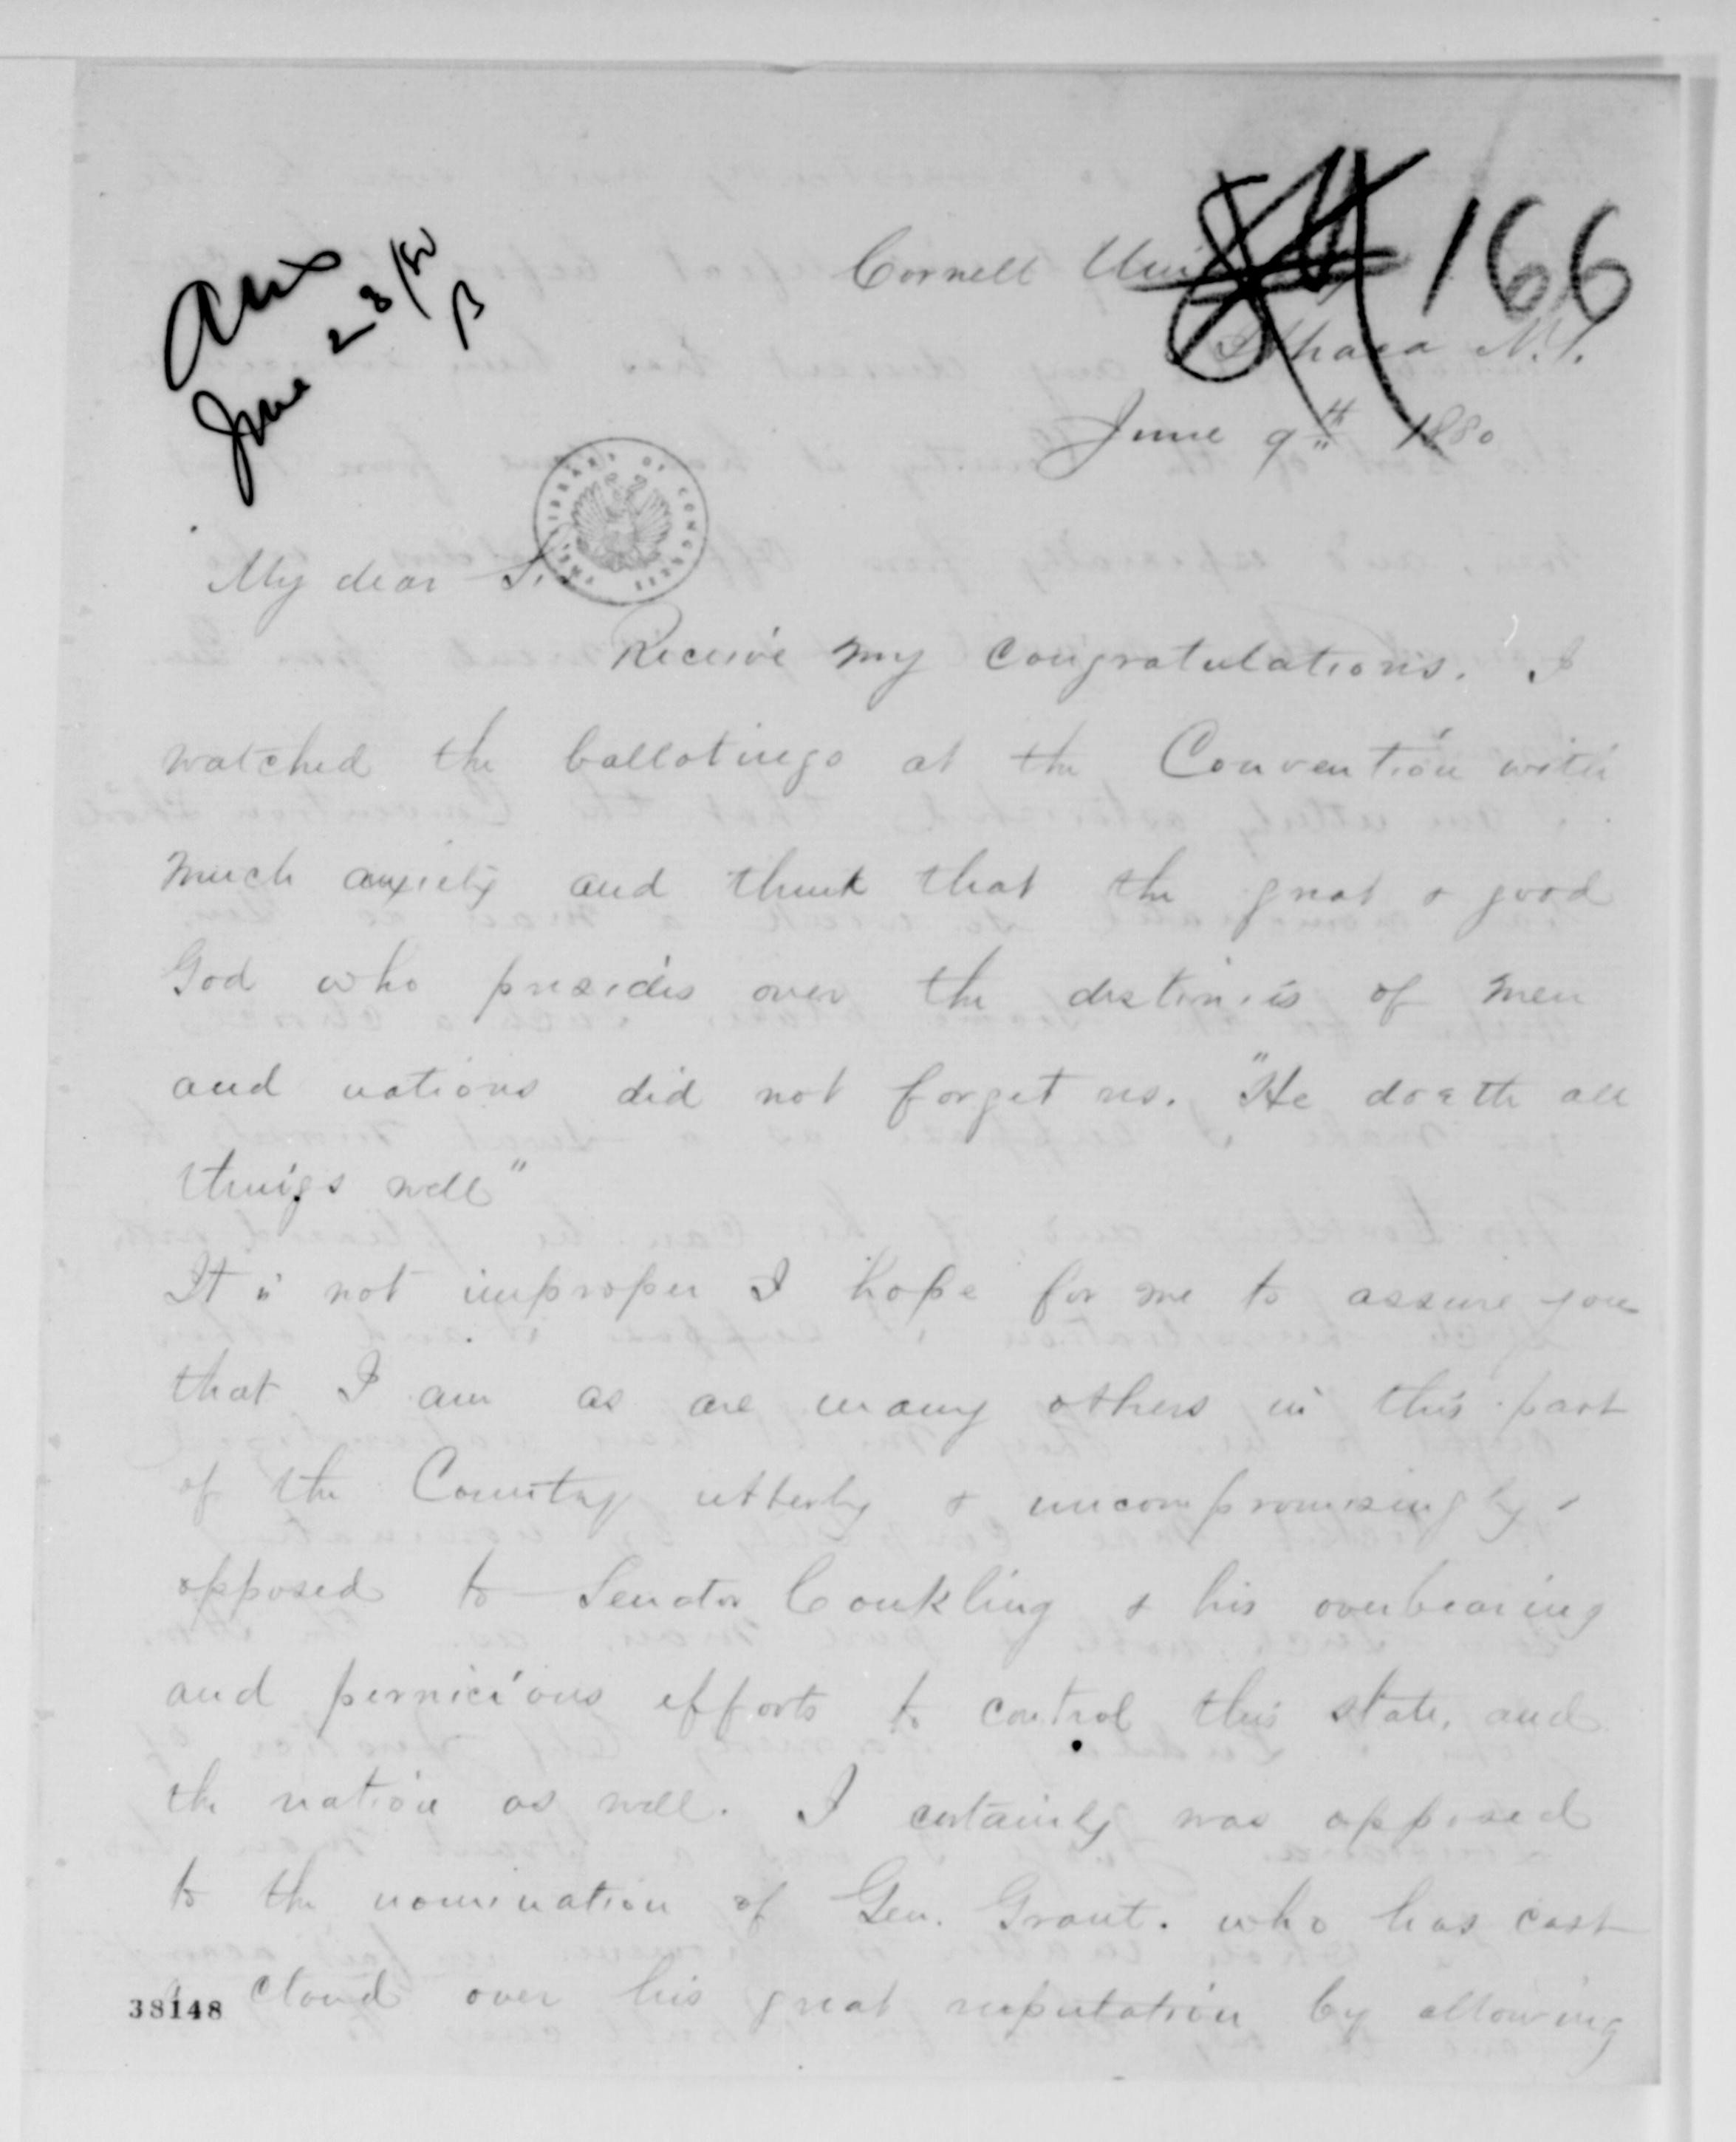 Ans
June 28/80
B
166
Cornell Uni
Ithaca N.Y.
June 9th 1880
THE LIBRARY OF CONGRESS
My dear Sir
Receive my congratulations. I
watched the ballotings at the Convention with
much anxiety and think that the great & good
God who presides over the destinies of men
and nations did not forget us. "He doeth all
things well"
It is not improper I hope for me to assure you
that I am as are many others in this part
of the Country utterly & uncompromisingly
opposed to Senator Conkling & his overbearing
and pernicious efforts to control this state, and
the nation as well. I certainly was opposed
to the nomination of Gen. Grant. who has cast
a cloud over his great reputation by allowing
38148